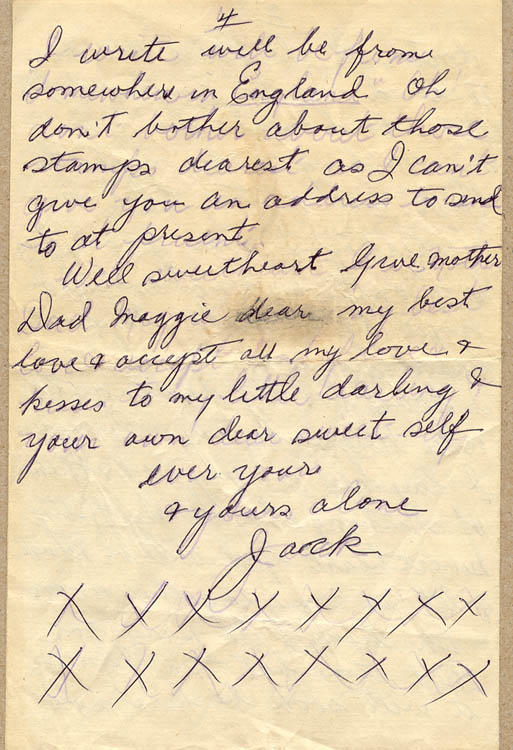 4
I write will be from
somewhere in England Oh
don't bother about those
stamps dearest as I can't
give you an address to send
to at present.
Well sweetheart Give Mother
Dad Maggie dear my best
love & accept all my love &
kisses to my little darling &
your own dear sweet self
ever yours
& yours alone
Jack
X X X X X X X X
X X X X X X X X